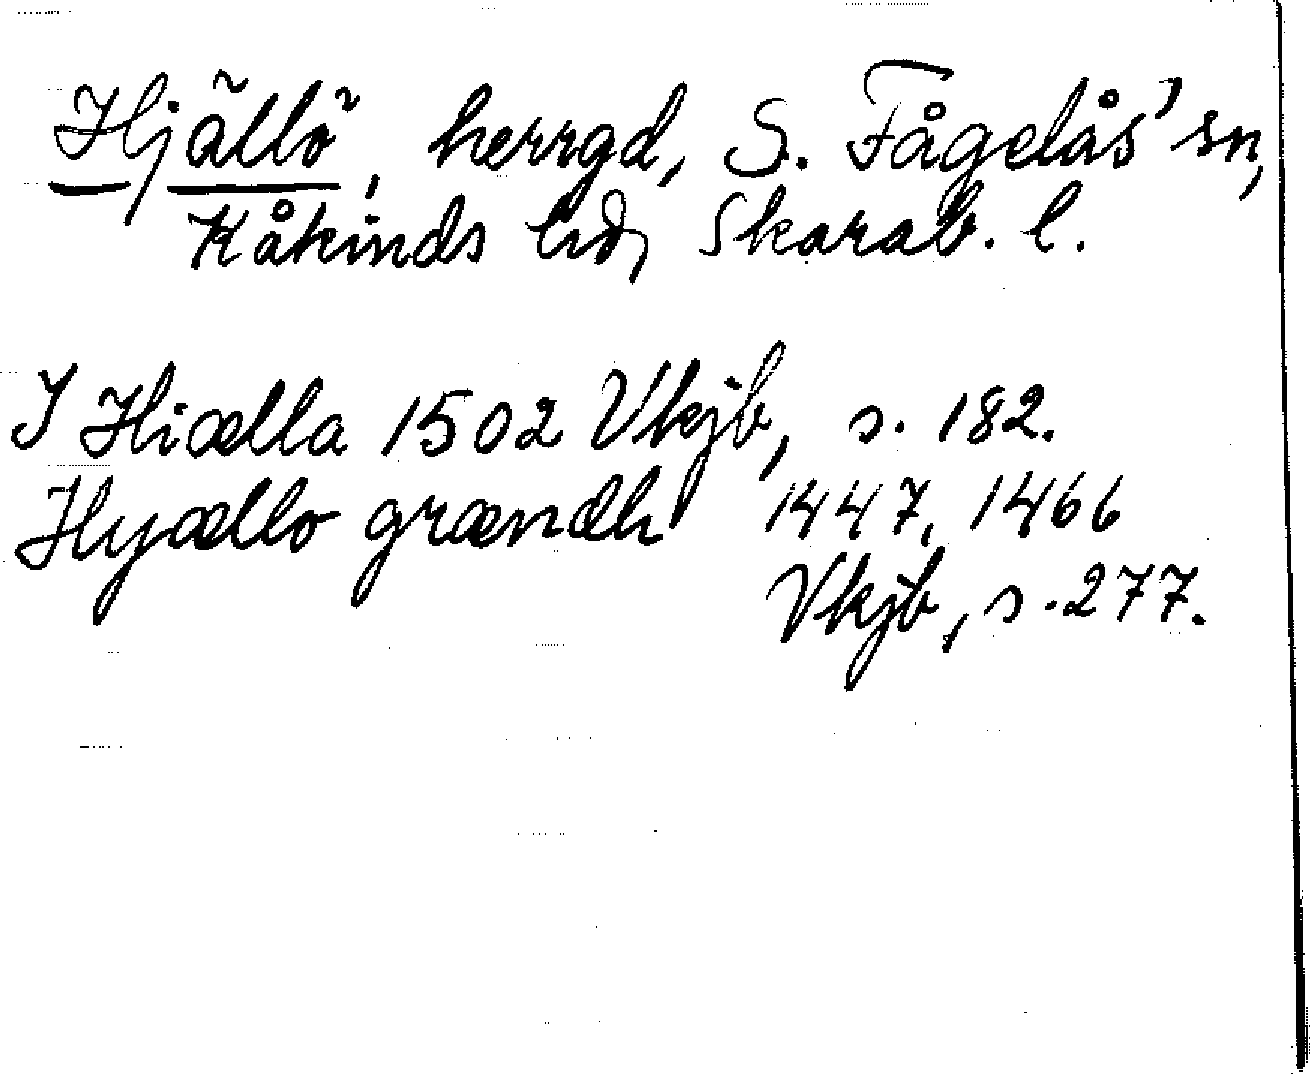 Hjällö, herrgd, S. Fågelås' sn,
Kåkinds hd, Skarab. l.
I Hiælla 1502 Vkjb, s. 182.
Hyællo grændh 1447, 1466
Vkjb, s. 277.